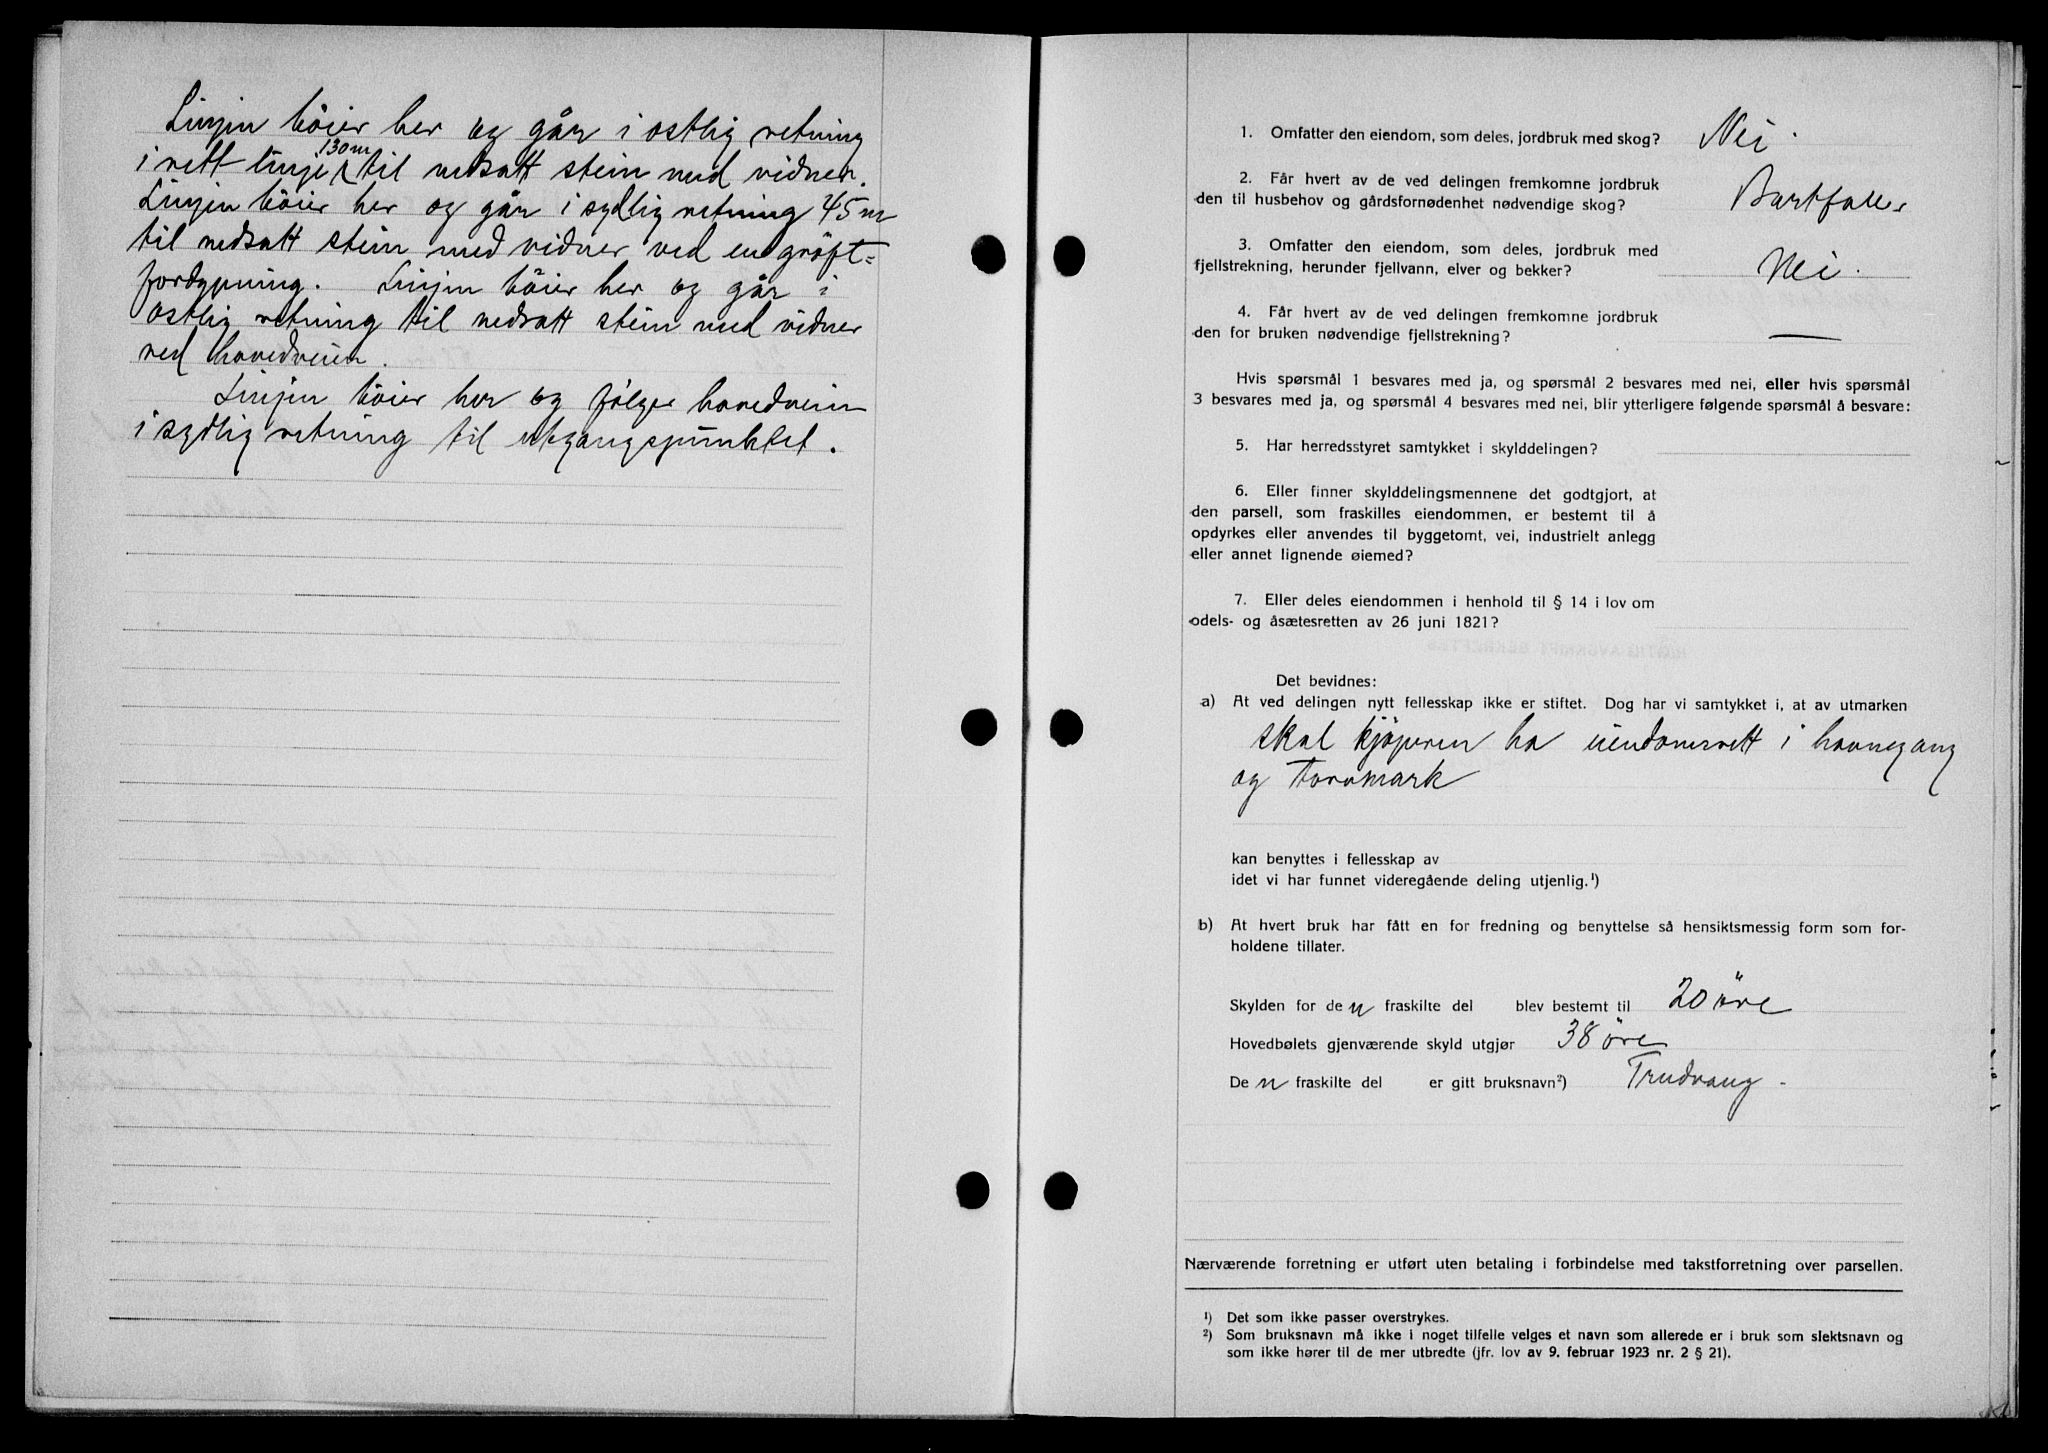 Linjen böier her og går i östlig retning
130 m
i rett linje til nedsatt stein med vidner.
Linjen böier her og går i sydlig retning 45 m
til nedsatt stein med vidner ved en gröft-
fordypning. Linjen böier her og går i
östlig retning til nedsatt stein med vidner
ved hovedveien.
Linjen böier her og følger hovedveien
i sydlig retning til utgangspunktet.
1. Omfatter den eiendom, som deles, jordbruk med skog? Nei.
2. Får hvert av de ved delingen fremkomne jordbruk
den til husbehov og gårdsfornødenhet nødvendige skog? Bortfaller
3. Omfatter den eiendom, som deles, jordbruk med
fjellstrekning, herunder fjellvann, elver og bekker? Nei.
4. Får hvert av de ved delingen fremkomne jordbruk
den for bruken nødvendige fjellstrekning? —
Hvis spørsmål 1 besvares med ja, og spørsmål 2 besvares med nei, eller hvis spørsmål
3 besvares med ja, og spørsmål 4 besvares med nei, blir ytterligere følgende spørsmål å besvare:
5. Har herredsstyret samtykket i skylddelingen?
6. Eller finner skylddelingsmennene det godtgjort, at
den parsell, som fraskilles eiendommen, er bestemt til å
opdyrkes eller anvendes til byggetomt, vei, industrielt anlegg
eller annet lignende øiemed?
7. Eller deles eiendommen i henhold til § 14 i lov om
odels- og åsætesretten av 26 juni 1821?
Det bevidnes:
a) At ved delingen nytt fellesskap ikke er stiftet. Dog har vi samtykket i, at av utmarken
skal kjöperen ha eiendomsrett i havnegang
og torvmark
kan benyttes i fellesskap av
idet vi har funnet videregående deling utjenlig.¹)
b) At hvert bruk har fått en for fredning og benyttelse så hensiktsmessig form som for-
holdene tillater.
Skylden for den fraskilte del blev bestemt til 20 öre
Hovedbølets gjenværende skyld utgjør 38 öre
Den fraskilte del er gitt bruksnavn²) Trudvang -
Nærværende forretning er utført uten betaling i forbindelse med takstforretning over parsellen.
¹) Det som ikke passer overstrykes.
²) Som bruksnavn må ikke i noget tilfelle velges et navn som allerede er i bruk som slektsnavn og
som ikke hører til de mer utbredte (jfr. lov av 9. februar 1923 nr. 2 § 21).